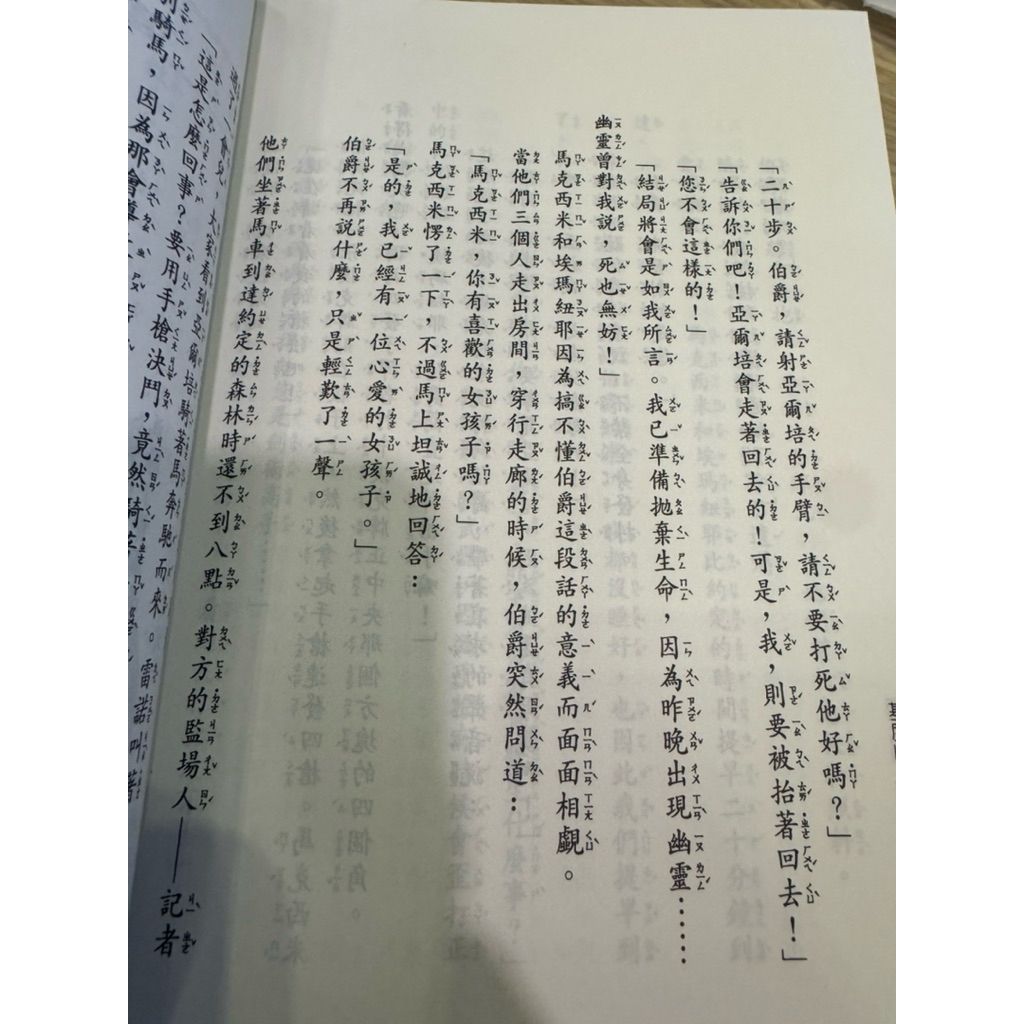 「二十步。伯爵，請射亞爾培的手臂，請不要打死他好嗎？」
「告訴你們吧！亞爾培會走著回去的！可是，我，則要被抬著回去！」
「您不會這樣的！」
「結局將會是如我所言。我已準備拋棄生命，因為昨晚出現幽靈……
幽靈曾對我說，死也無妨！」
馬克西米和埃瑪紐耶因為搞不懂伯爵這段話的意義而面面相覷。
當他們三個人走出房間，穿行走廊的時候，伯爵突然問道：
「馬克西米，你有喜歡的女孩子嗎？」
馬克西米愣了一下，不過馬上坦誠地回答：
「是的，我已經有一位心愛的女孩子。」
伯爵不再說什麼，只是輕歎了一聲。
他們坐著馬車到達約定的森林時還不到八點。對方的監場人——記者
過了一會兒，大家看到亞爾培騎著馬奔馳而來。雷諾叫著
「這是怎麼回事？要用手槍決鬥，竟然騎
騎馬，因為那會